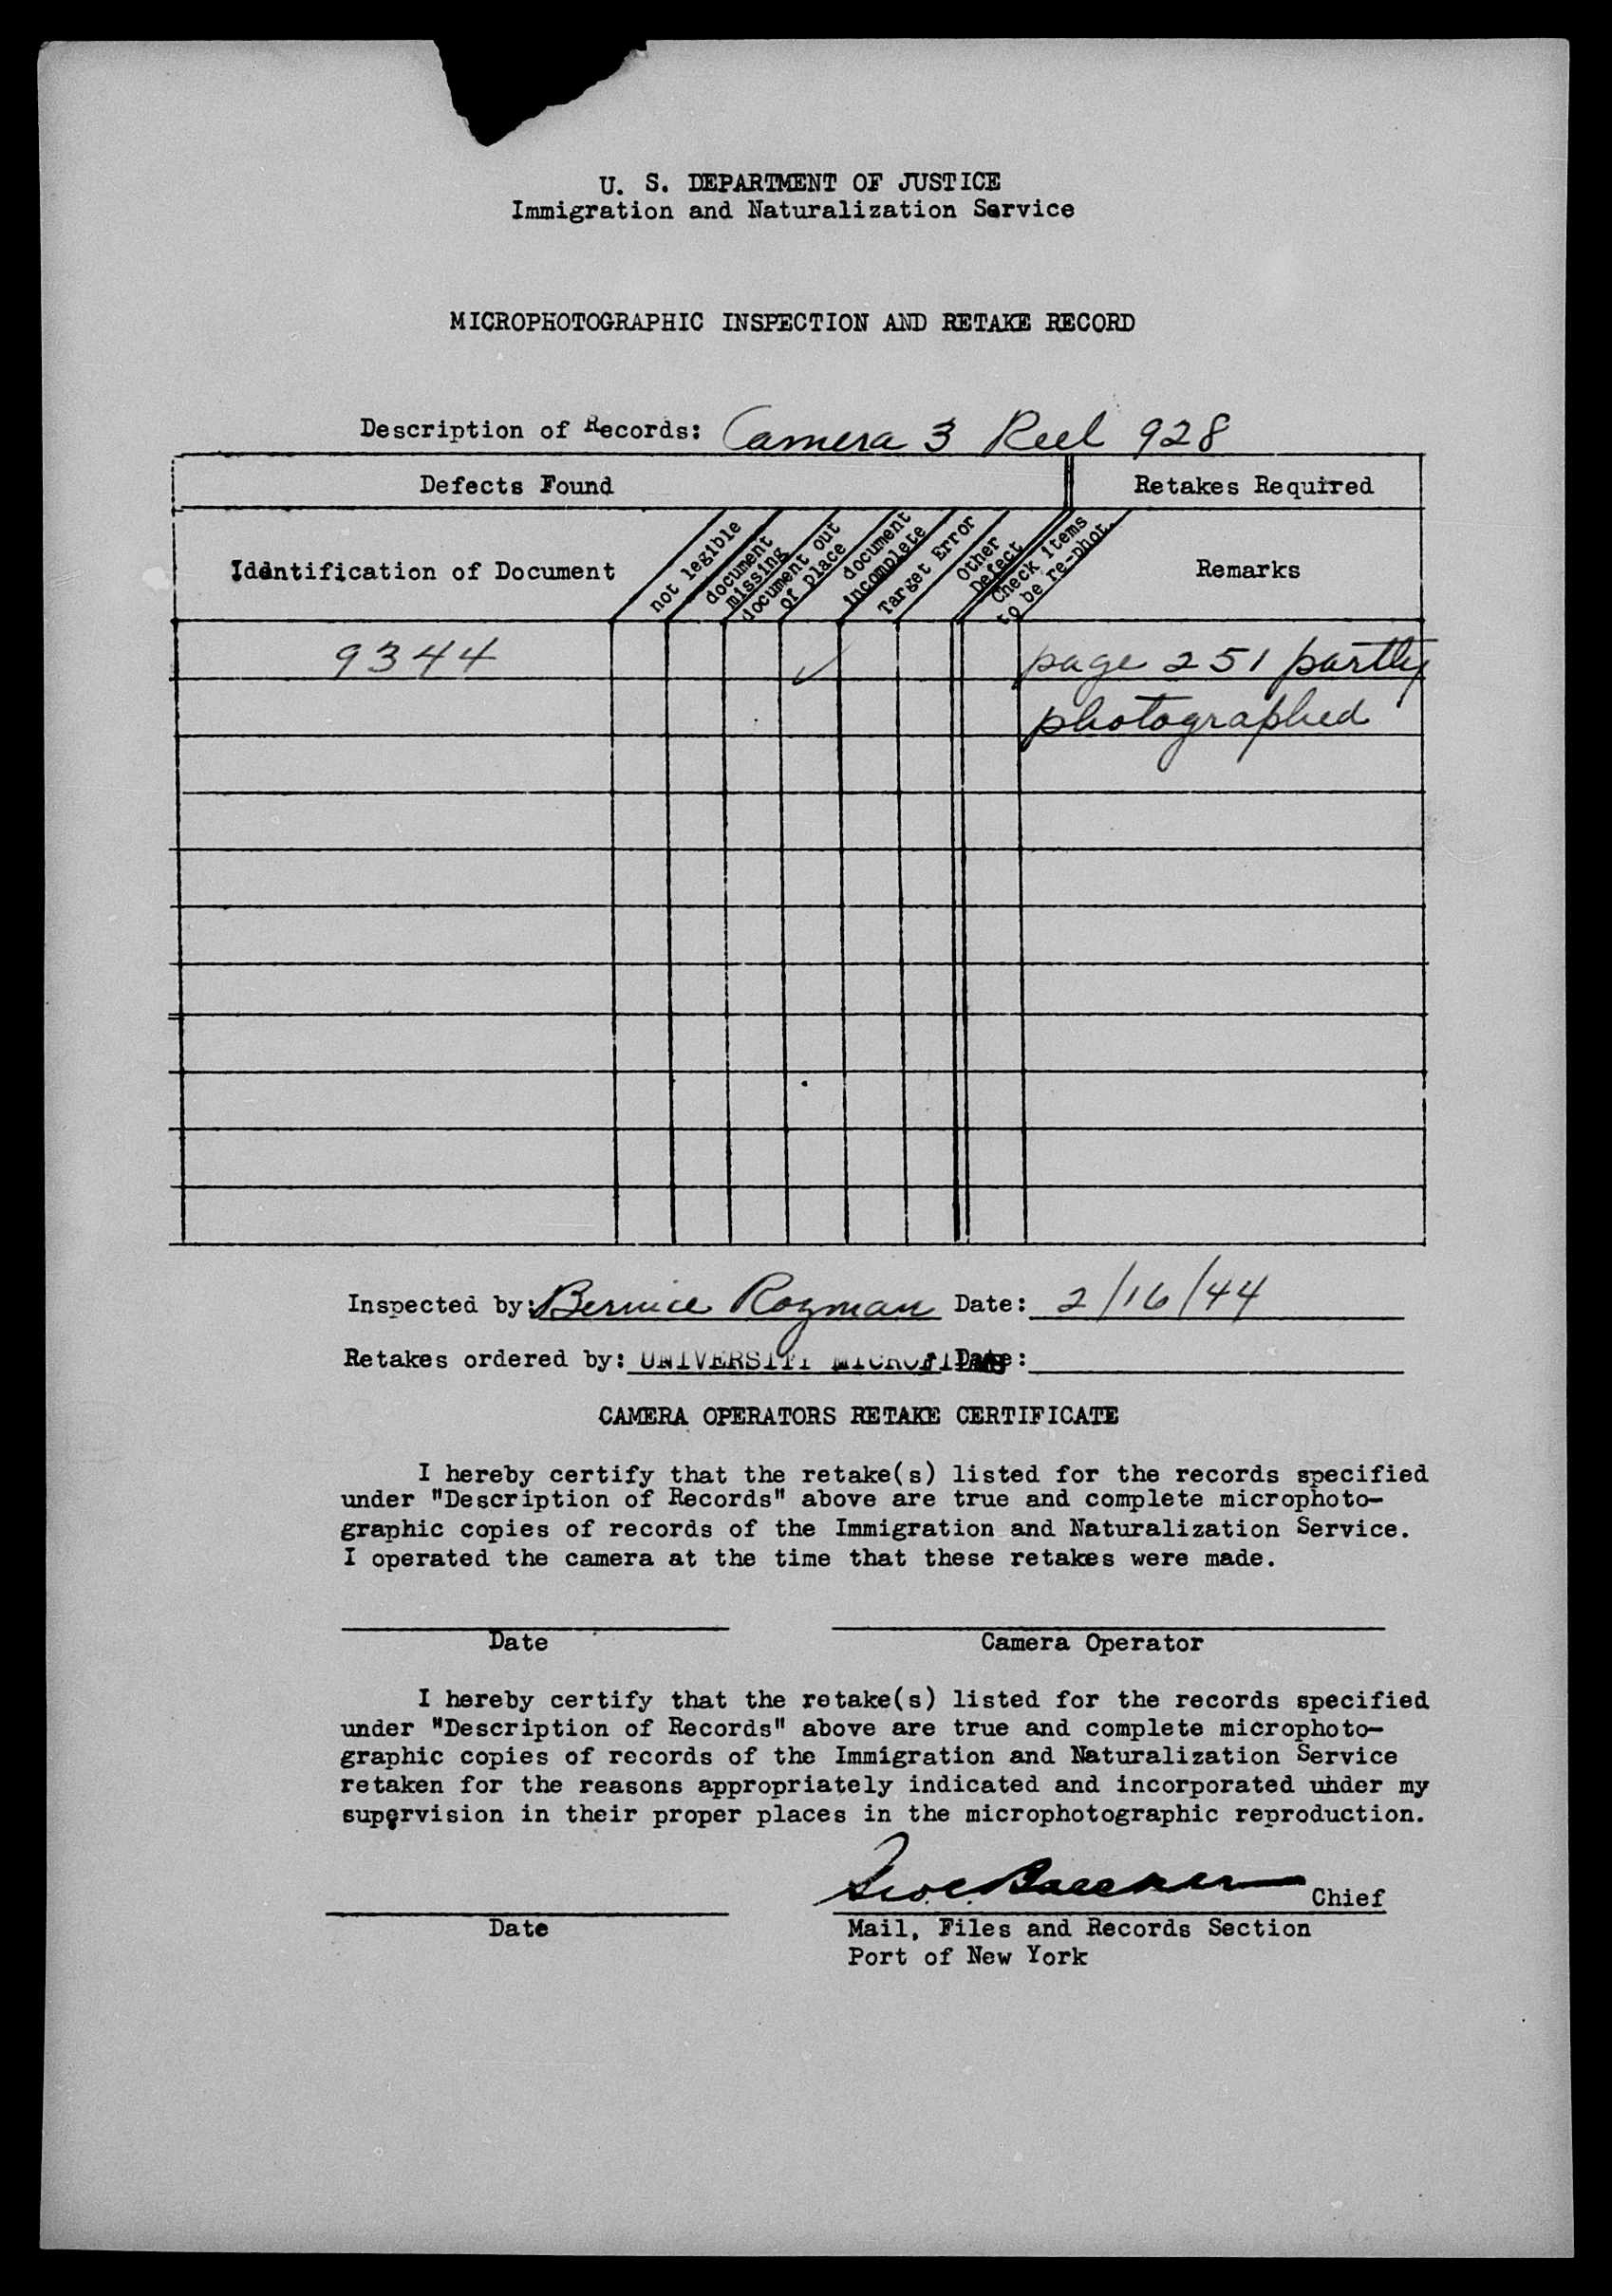 U. S. DEPARTMENT OF JUSTICE
Immigration and Naturalization Service
MICROPHOTOGRAPHIC INSPECTION AND RETAKE RECORD
Description of Records: Camera 3 Reel 928
Defects Found
Retakes Required
Identification of Document
not legible
document missing
document out of place
document incomplete
Target Error
Other Defect
Check items to be re-phot.
Remarks
9344 ✓ page 251 partly
photographed
Inspected by: Bernice Rozman Date: 2/16/44
Retakes ordered by: UNIVERSITY MICROFILMS Date:
CAMERA OPERATORS RETAKE CERTIFICATE
I hereby certify that the retake(s) listed for the records specified
under "Description of Records" above are true and complete microphoto-
graphic copies of records of the Immigration and Naturalization Service.
I operated the camera at the time that these retakes were made.
Date Camera Operator
I hereby certify that the retake(s) listed for the records specified
under "Description of Records" above are true and complete microphoto-
graphic copies of records of the Immigration and Naturalization Service
retaken for the reasons appropriately indicated and incorporated under my
supervision in their proper places in the microphotographic reproduction.
Chief
Date Mail, Files and Records Section
Port of New York